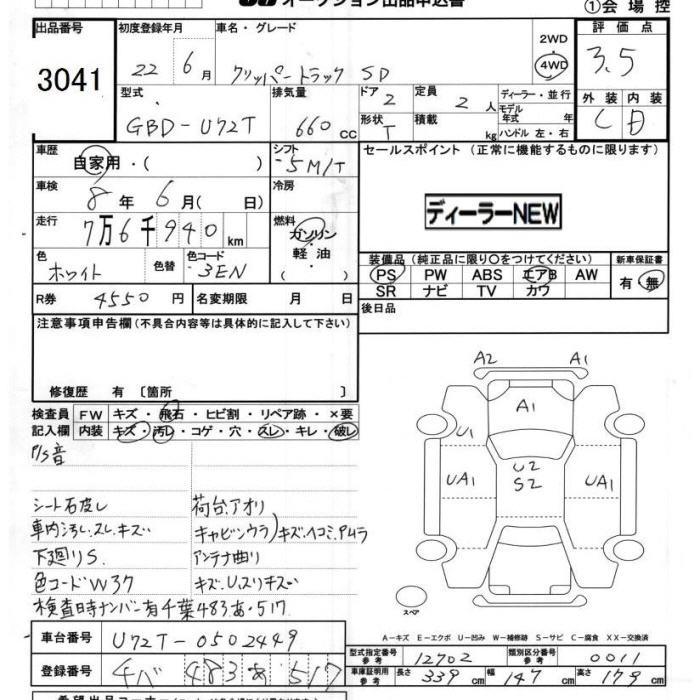 オークション出品申込書
①会場控
出品番号
3041
初度登録年月
22年 6月
車名・グレード
クリッパートラック SD
2WD
4WD
評価点
3.5
外装 内装
C D
型式
GBD-U72T
排気量
660 cc
ドア 2
定員 2人
ディーラー・並行
モデル
年式 年
形状 T
積載 kg
ハンドル 左・右
車歴
自家用・( )
シフト
5M/T
セールスポイント (正常に機能するものに限ります)
車検
8年 6月( 日)
冷房
ディーラーNEW
走行
7万6千940km
燃料
ガソリン
軽油
( )
色
ホワイト
色替
色コード
3EN
装備品(純正品に限り○をつけてください)
PS PW ABS エアB AW
SR ナビ TV カワ
新車保証書
有・無
R券 4550円
名変期限 月 日
後日品
注意事項申告欄(不具合内容等は具体的に記入して下さい)
修復歴 有 〔箇所 〕
検査員 FW キズ・飛石・ヒビ割・リペア跡・×要
記入欄 内装 キズ・汚レ・コゲ・穴・スレ・キレ・破レ
P/S音
シート破レ
車内汚レ.スレ.キズ
下廻りS.
色コードW37
検査日時ナンバー有千葉483あ・517.
荷台.アオリ
キャビンウラ)キズ.ヘコミ.Pムラ
アンテナ曲り
キズ.U.スリキズ
A2 A1
A1
U1
UA1
U2
S2
UA1
スペア
A-キズ E-エクボ U-凹み W-補修跡 S-サビ C-腐食 XX-交換済
車台番号 U72T-0502449
登録番号 チバ 483 あ 517
型式指定番号 参考 12702
類別区分番号 参考 0011
車庫証明用 参考 長さ 339cm 幅 147cm 高さ 178cm